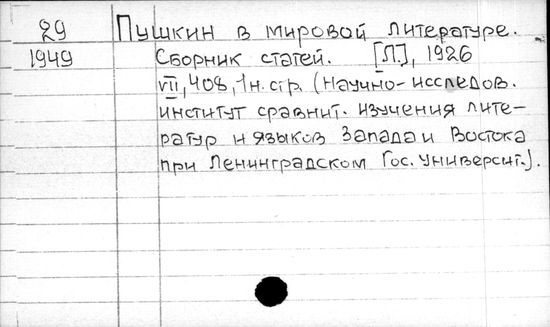 29 Пушкин в мировой литературе.
1949 Сборник статей. [Л.], 1926
VII, 408, 1 н. стр. (Научно-исследов.
институт сравнит. изучения лите-
ратур и языков Запада и Востока
при Ленинградском Гос. университ.).